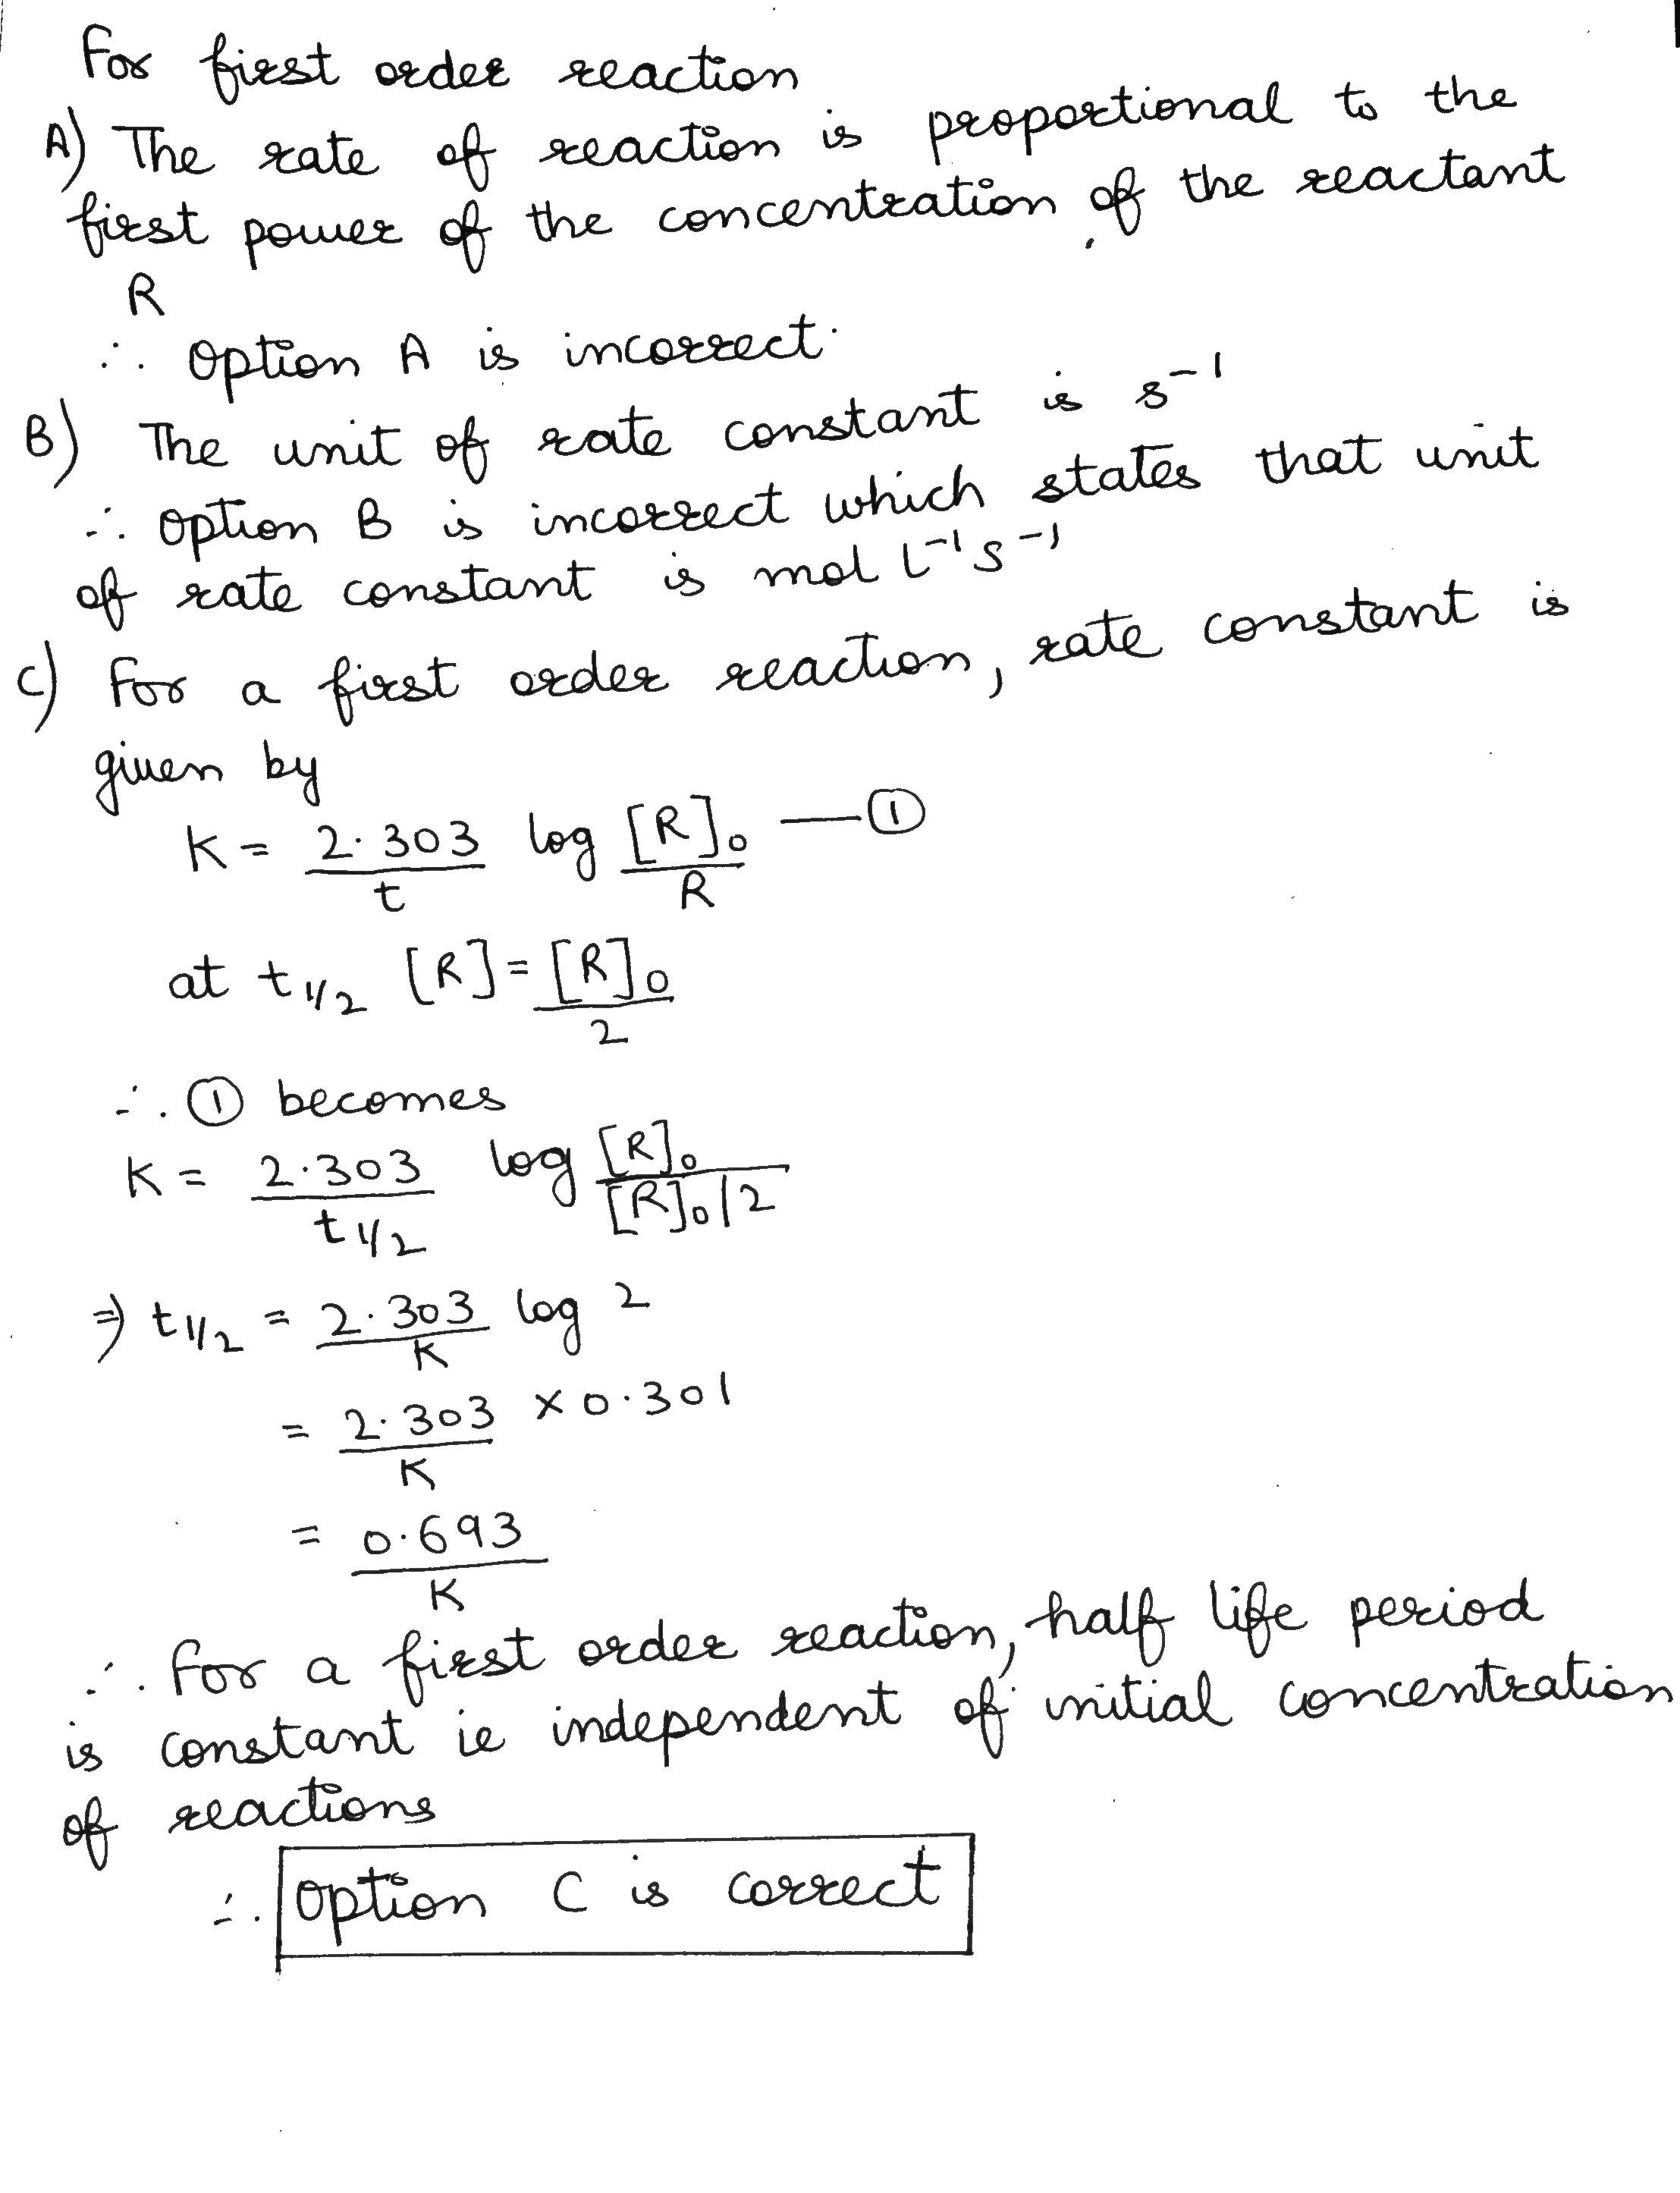 For first order reaction
A) The rate of reaction is proportional to the
first power of the concentration of the reactant
R
∴ Option A is incorrect.
B) The unit of rate constant is s⁻¹
∴ Option B is incorrect which states that unit
of rate constant is mol L⁻¹ s⁻¹
C) For a first order reaction, rate constant is
given by
K = 2.303/t log [R]₀/R — ①
at t1/2 [R] = [R]₀/2
∴ ① becomes
K = 2.303/t1/2 log [R]₀/[R]₀/2
⇒ t1/2 = 2.303/K log 2
= 2.303/K × 0.301
= 0.693/K
∴ For a first order reaction, half life period
is constant ie independent of initial concentration
of reactions
∴ Option C is correct